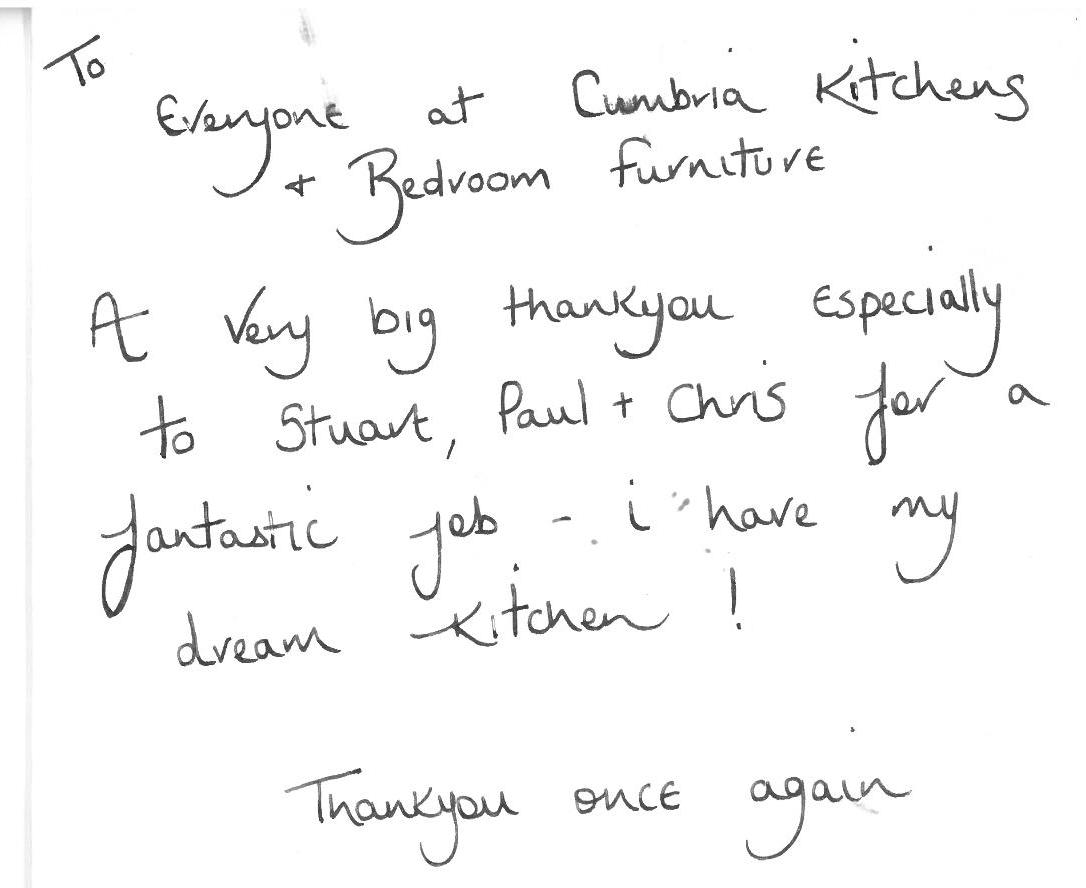 To
Everyone at Cumbria Kitchens
+ Bedroom furniture
A Very big thankyou especially
to Stuart, Paul + Chris for a
fantastic job - i have my
dream kitchen !
Thankyou once again